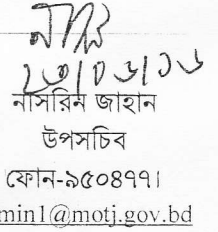 নাসরিন জাহান
উপসচিব
ফোন-৯৫০৪৭৭।
min1@motj.gov.bd